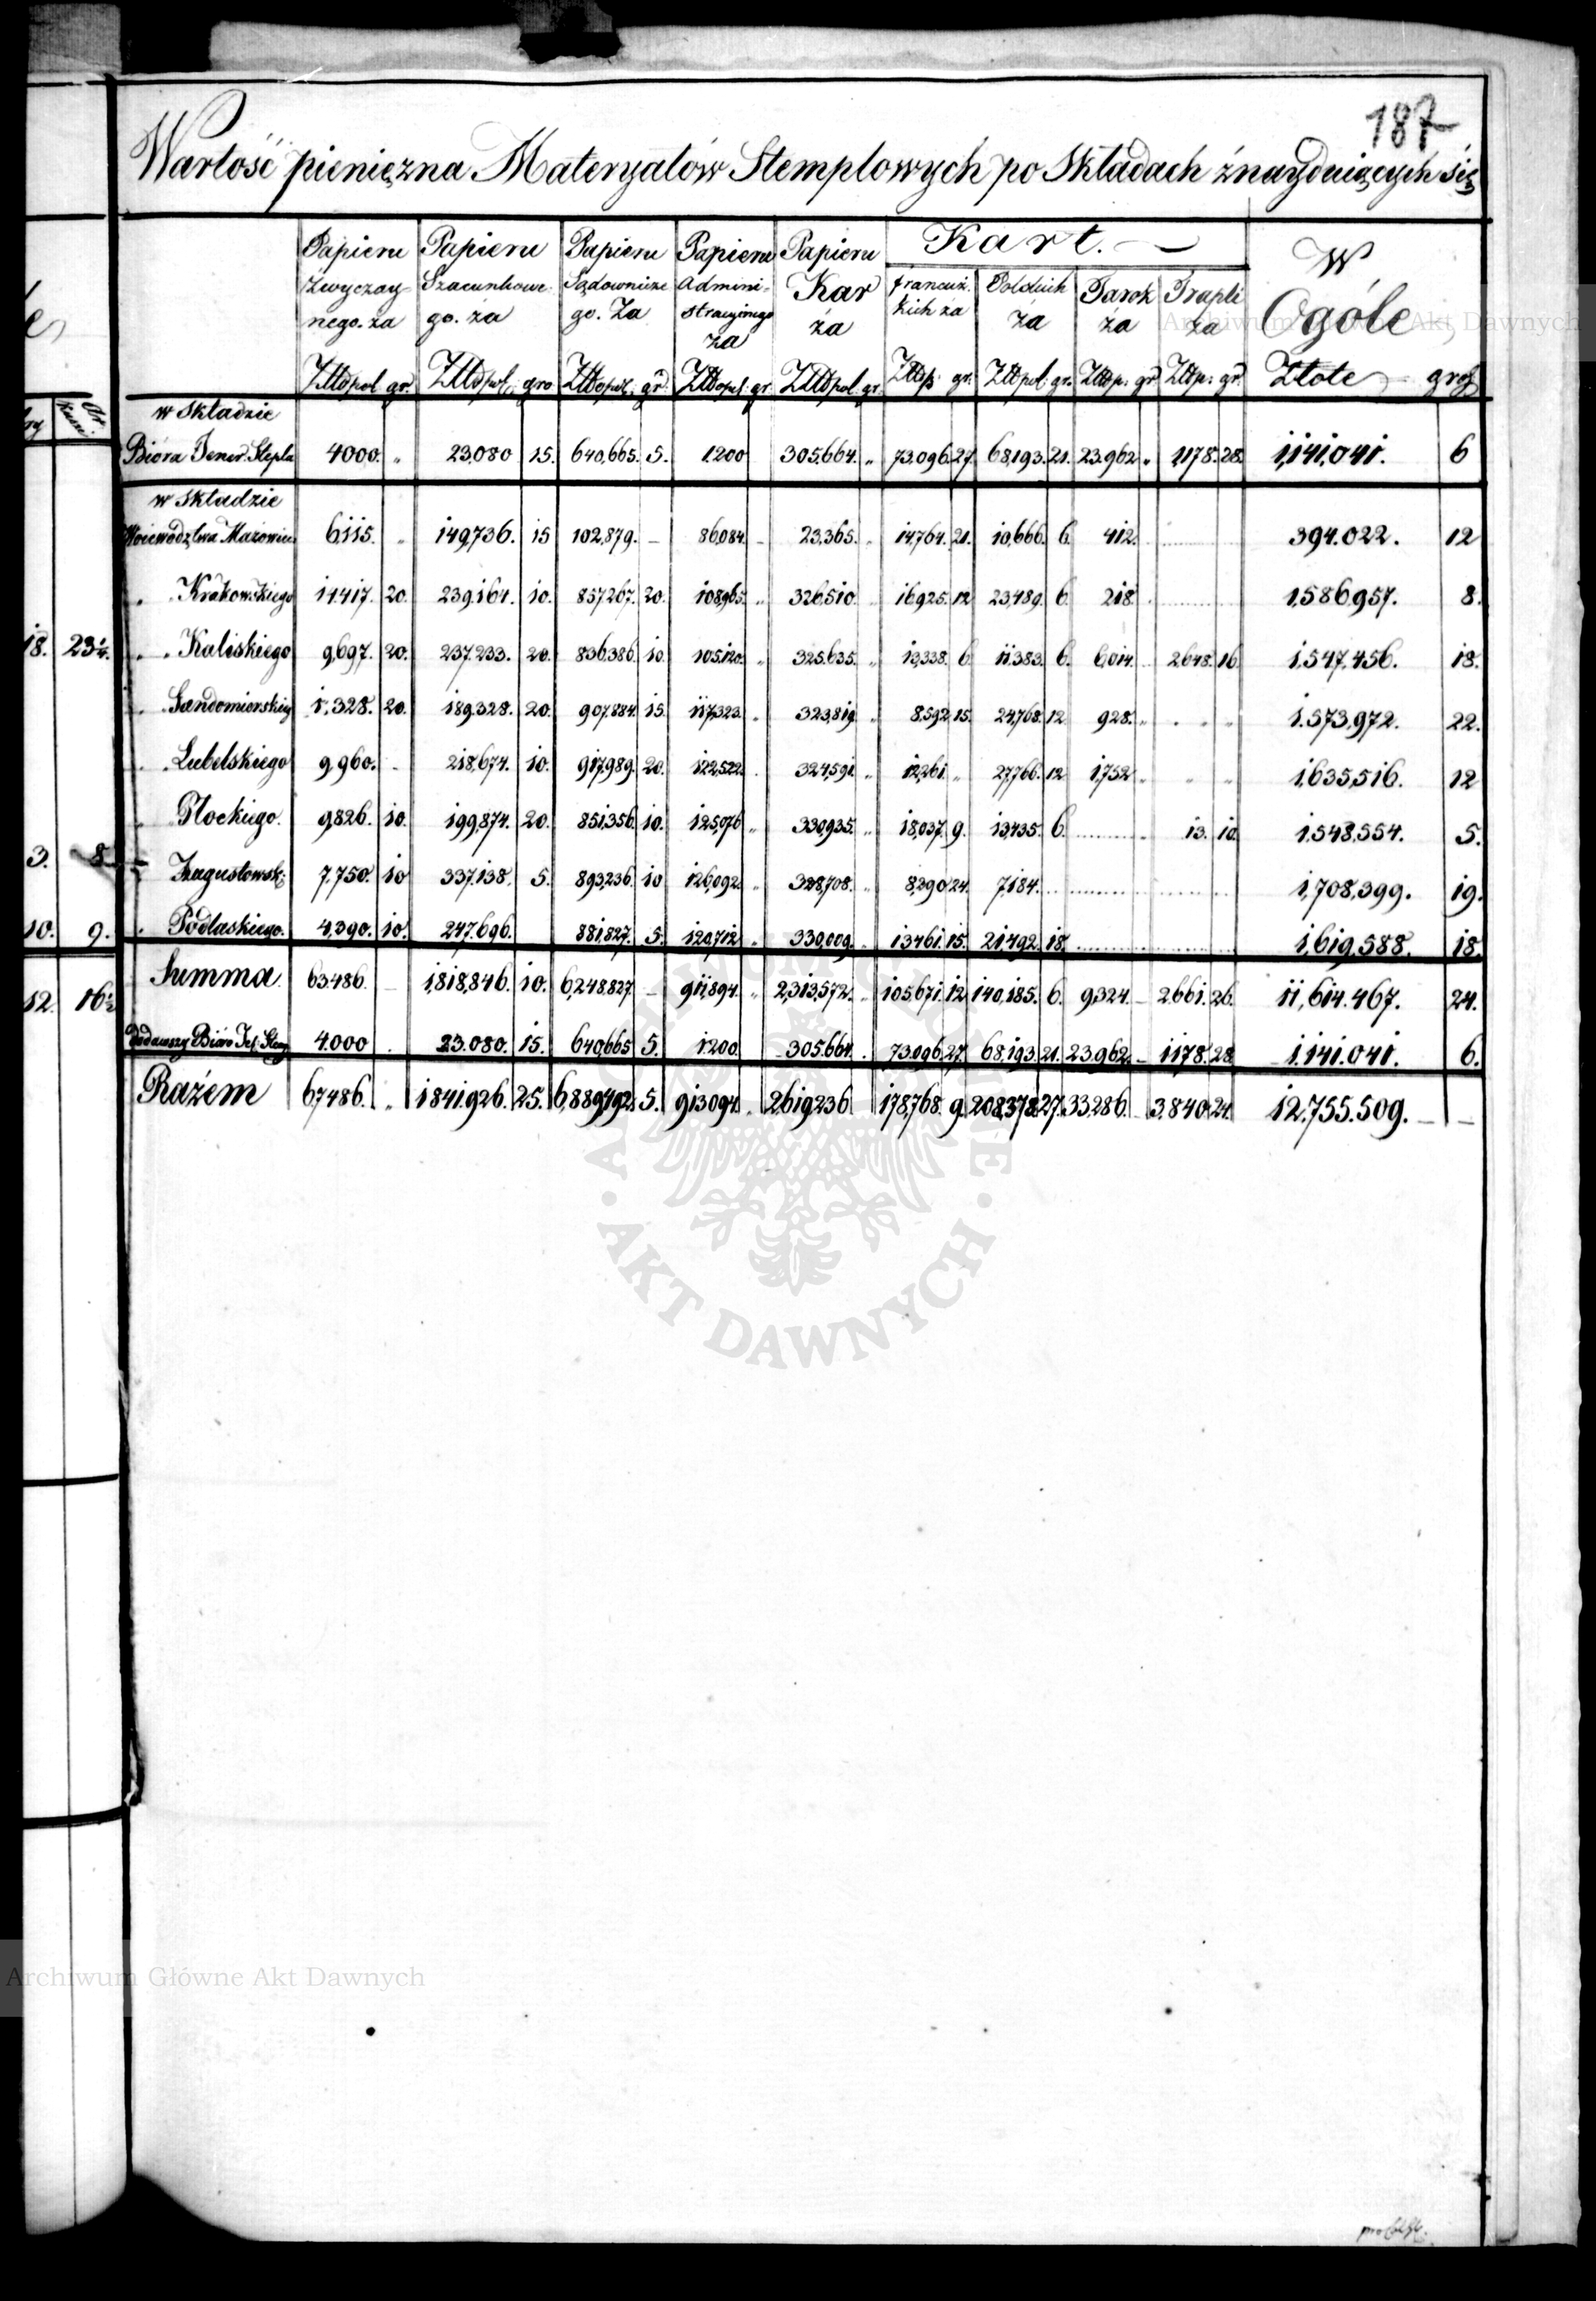 187
Wartość pieniężna Materyałów Stemplowych po Składach znayduiących się
Papieru Papieru Papieru Papieru Papieru Kart. W
Zwyczay Szacunkowe Sądownicze Admini= Kar Francuz. Polskich Tarok Trapli Ogóle
nego. za go. za go. Za stracyinego za kich za za za za
za
Złłdpol gr. Złłdpol. gro Złłdpol. gr. Złłdpol. gr. Złłdpol gr. Złłdp. gr. Złłdpol. gr. Złłdp. gr. Złłdp. gr. Złote grosz
w Składzie
Bióra Jener. Stepla 4000. „ 23,080 15. 640,665. 5. 1.200 305,664. „ 73,096. 27. 68,193. 21. 23,962 „ 1,178. 28. 1,141,041. 6
w Składzie
Woiewództwa Mazowiec 6,115. „ 149,736. 15 102,879. – 86,084. – 23,365. „ 14,764. 21. 10,666. 6. 412. 394.022. 12
„ „ Krakowskiego 14.417. 20. 239.164. 10. 857,267. 20. 108,965. „ 326,510. 16,925. 12 23,489. 6. 218. 1,586,957. 8.
18. 23¼. „ „ Kaliskiego 9,697. 20. 237.233. 20. 836,386. 10. 105,120. „ 325.635. „ 13,338. 6 11,383. 6. 6,014. 2,648. 16. 1,547,456. 18.
„ Sandomierskieg 1,328. 20. 189.328. 20. 907,884. 15. 117,323. „ 323,819 „ 8,592. 15. 24,768. 12 928. „ „ „ 1.573,972. 22.
„ Lubelskiego 9,960. – 218,674. 10. 917,989. 20. 122,522. 324,591. „ 12,261. „ 27,766. 12 1,752 „ „ „ 1,635,516. 12
„ Płockiego. 9,826. 10. 199,874. 20. 851,356. 10. 125,076 „ 330,935. „ 18,037. 9. 13,435. 6. „ 13. 10. 1,548,554. 5.
3. 8. „ Augustowsk: 7,750. 10 337.138. 5. 893,236. 10 126,092. „ 328,708. „ 8,290 24. 7,184. 1,708,399. 19.
10. 9. „ Podlaskiego. 4,390. 10. 247.696. 881,827. 5. 120,712 „ 330,009. „ 13,461. 15. 21,492. 18. 1,619,588. 18.
12. 16½ Summa. 63486. – 1,818,846. 10. 6,248,827 – 911,894. „ 2,313,572. „ 105,671. 12. 140,185. 6. 9,324. – 2,661. 26. 11,614.467. 24.
dodawszy Bióro Jeł: Stemp 4.000 23.080. 15. 640,665 5. 1200. 305.664. 73.096. 27. 68.193. 21. 23,962 – 1178. 28. 1.141.041. 6.
Razem 67,486. „ 1841.926. 25. 6,889,492. 5. 913,094. „ 2619,236 178,768. 9. 208,378. 27. 33,286. 3,840. 24. 12.755.509. – –
Archiwum Główne Akt Dawnych
AKT DAWNYCH
Archiwum Główne Akt Dawnych